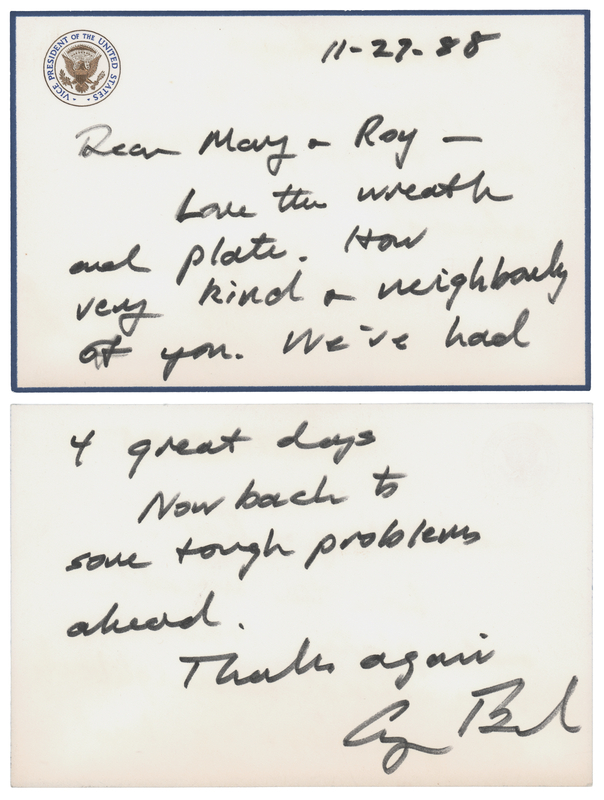 VICE PRESIDENT OF THE UNITED STATES
11-27-88
Dear Mary & Roy —
Love the wreath
and plate. How
very kind & neighborly
of you. We've had
4 great days
Now back to
some tough problems
ahead.
Thanks again
Bush